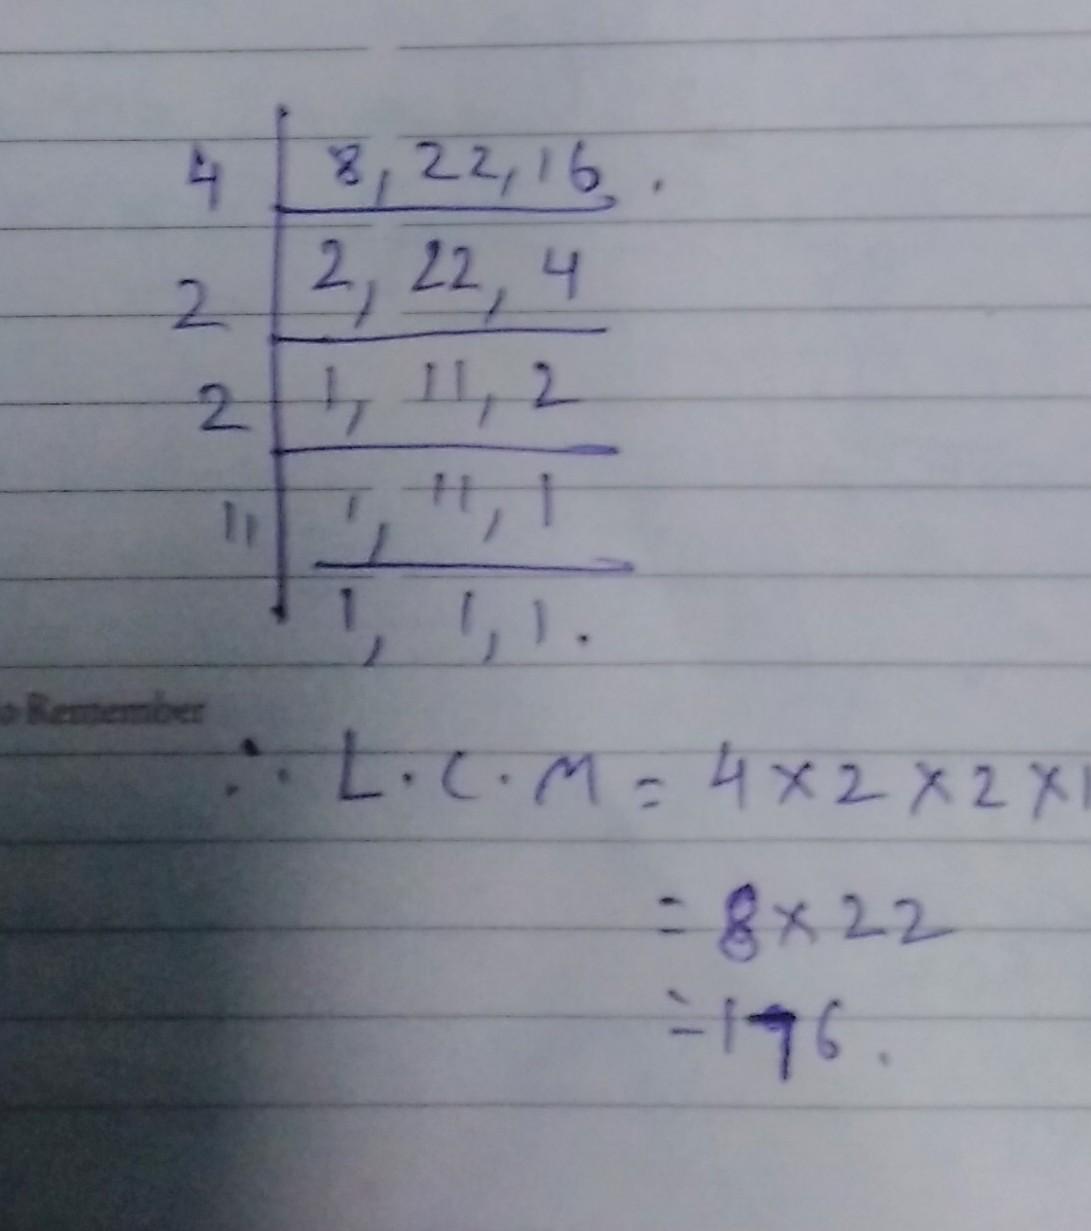 4 | 8, 22, 16.
2 | 2, 22, 4
2 | 1, 11, 2
11 | 1, 11, 1
1, 1, 1.
o Remember
∴ L.C.M = 4 × 2 × 2 × 1
= 8 × 22
= 176.